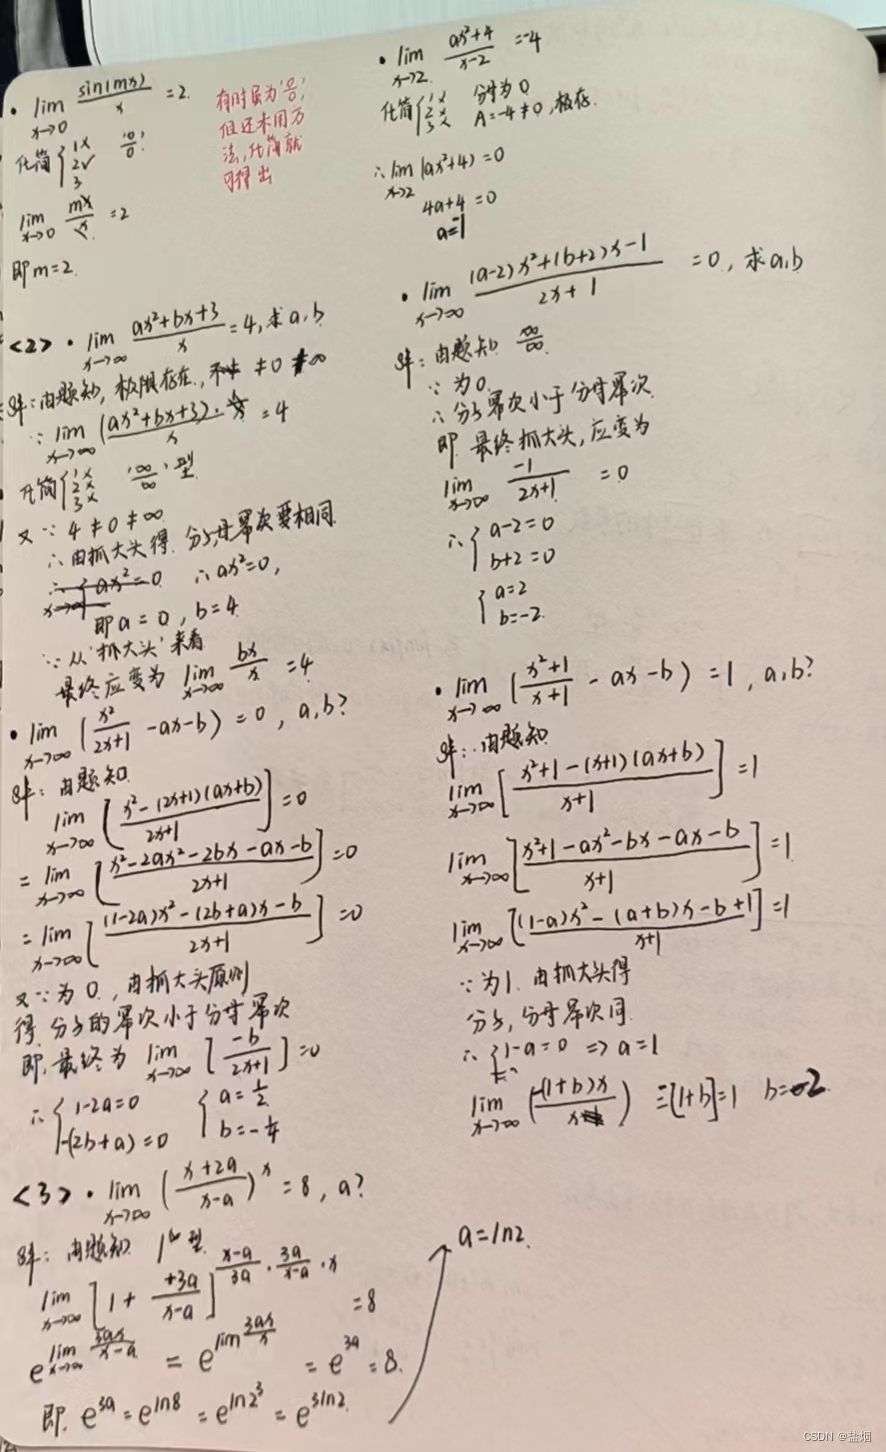 · lim x→0 sin(mx)/x = 2.
有时虽为'0/0',
但还未用方
法,化简就
可得出
化简{1× 2√ 3 '0/0'
lim x→0 mx/x = 2
即m=2.
<2>. lim x→∞ (ax²+bx+3)/x = 4, 求a,b
解:由题知,极限存在, ≠0 ≠∞
∵ lim x→∞ (ax²+bx+3)/x = 4
化简{1× 2× 3× '∞/∞'型
又∵ 4≠0≠∞
∴由抓大头得 分子,母幂次要相同
∴ax²=0,
即a=0, b=4
∵从'抓大头'来看
最终应变为 lim x→∞ bx/x = 4
· lim x→∞ (x²/(2x+1) -ax-b) = 0, a,b?
解:由题知
lim x→∞ [(x²-(2x+1)(ax+b))/(2x+1)] = 0
= lim x→∞ [(x²-2ax²-2bx-ax-b)/(2x+1)] = 0
= lim x→∞ [((1-2a)x²-(2b+a)x-b)/(2x+1)] = 0
又∵为0, 由抓大头原则
得 分子的幂次小于分母幂次
即,最终为 lim x→∞ [-b/(2x+1)] = 0
∴ {1-2a=0 -(2b+a)=0 {a=1/2 b=-1/4
<3>. lim x→∞ ((x+2a)/(x-a))^x = 8, a?
解:由题知 1^∞型
lim x→∞ [1+ +3a/(x-a)]^((x-a)/3a · 3a/(x-a) · x) = 8
e^(lim x→∞ 3ax/(x-a)) = e^(lim 3ax/x) = e^3a = 8.
即. e^3a = e^ln8 = e^ln2³ = e^3ln2
a=ln2.
· lim x→2 (ax²+4)/(x-2) = -4
化简{1× 2× 3× 分母为0
A=-4≠0,极存.
∴ lim x→2 (ax²+4) = 0
4a+4=0
a=-1
· lim x→∞ ((a-2)x²+(b+2)x-1)/(2x+1) = 0, 求a,b
解:由题知 ∞/∞
∵为0.
∴分子幂次小于分母幂次
即 最终抓大头,应变为
lim x→∞ -1/(2x+1) = 0
∴ {a-2=0 b+2=0
{a=2 b=-2.
· lim x→∞ ((x²+1)/(x+1) - ax-b) = 1, a,b?
解:由题知
lim x→∞ [(x²+1-(x+1)(ax+b))/(x+1)] = 1
lim x→∞ [(x²+1-ax²-bx-ax-b)/(x+1)] = 1
lim x→∞ [((1-a)x²-(a+b)x-b+1)/(x+1)] = 1
∵为1. 由抓大头得
分子,分母幂次同.
∴ {1-a=0 => a=1
lim x→∞ (-(1+b)x/x) =-[1+b]=1 b=-2
CSDN @盐烟